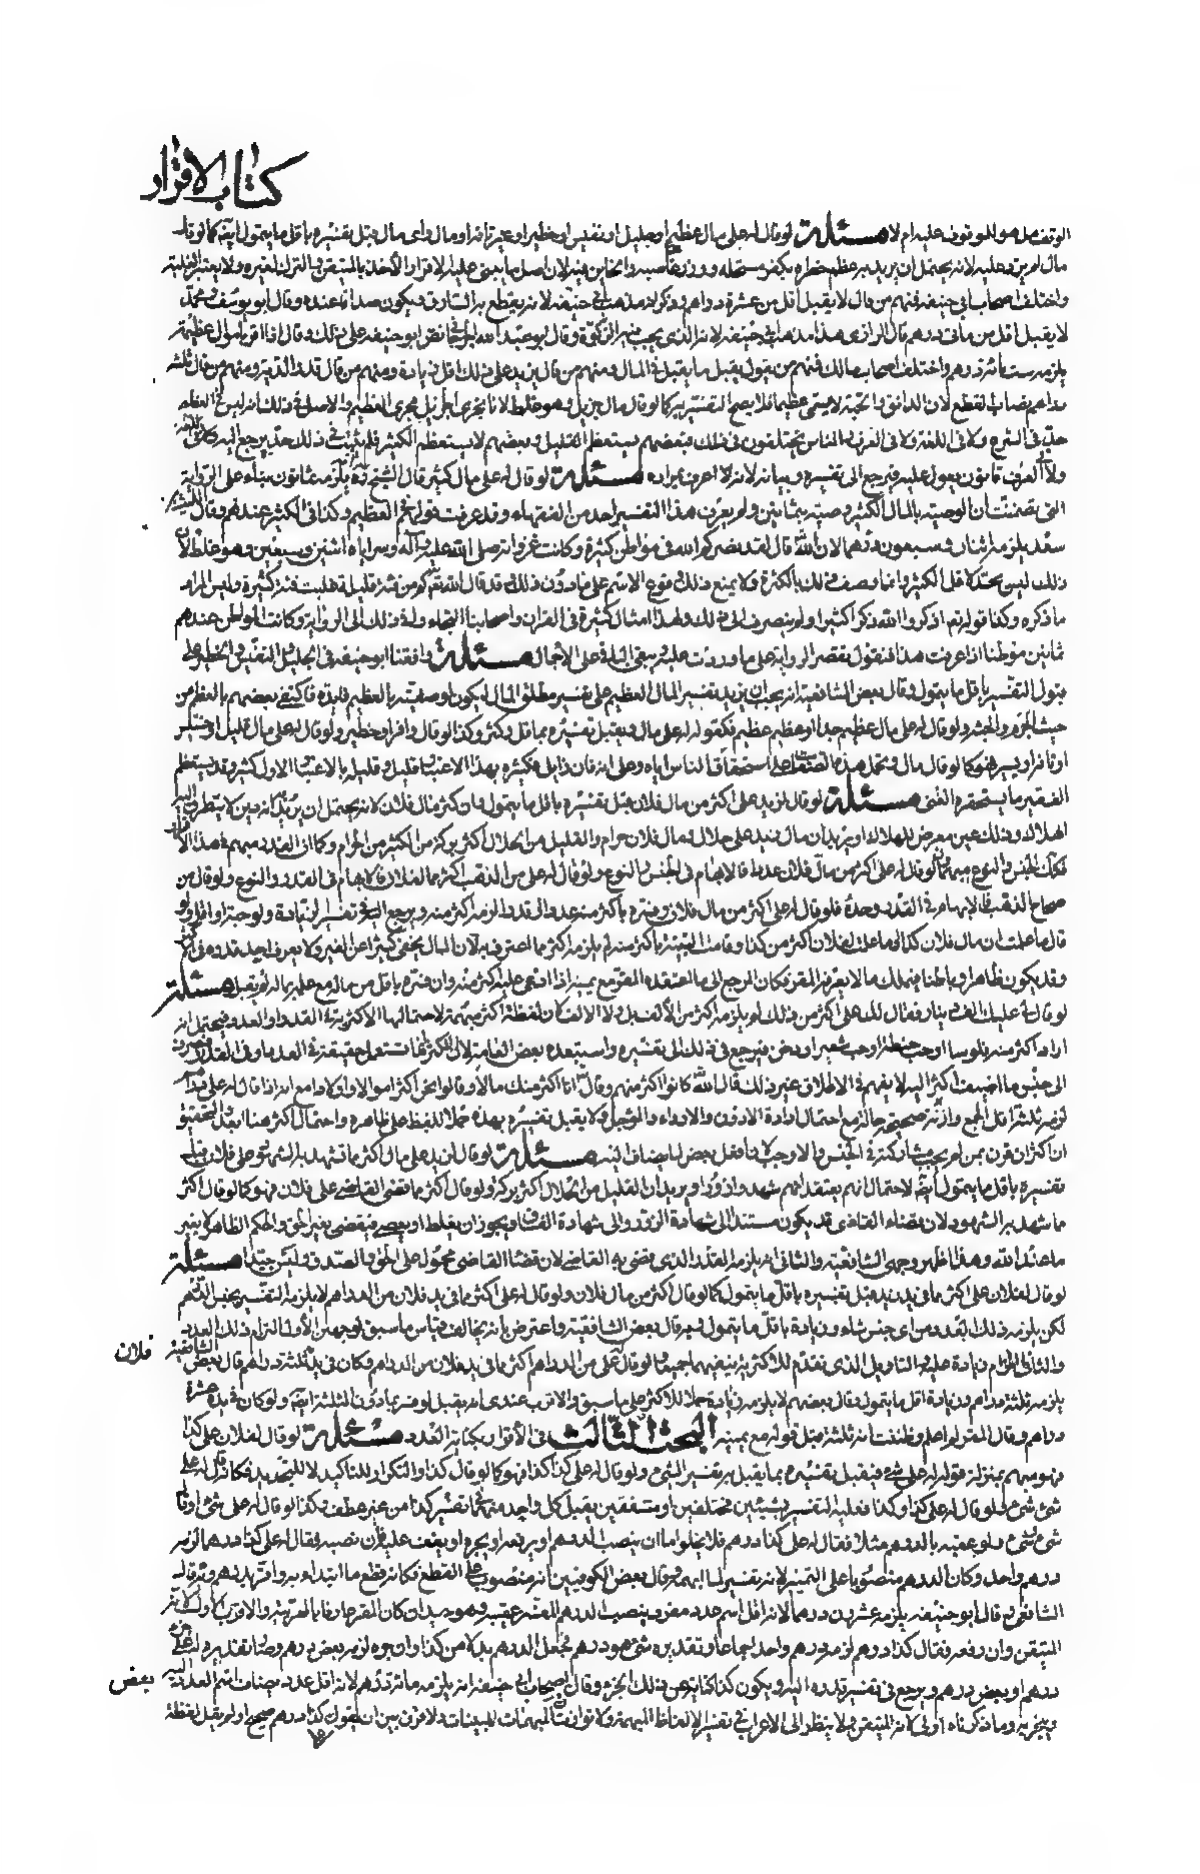 كتاب الاقرار
مسئلة لو قال له على مال عظيم او جليل او نفيس او خطير او غير تافه او مال واى مال قبل تفسيره باقل ما يتمول ايضا كما لو قال
مال لم يزد عليه لانه يحتمل ان يريد به عظيم خطره بكفر مستحله ووزر غاصبه والخاين فيه لان اصل ما يبنى عليه الاقرار الاخذ بالمتيقن والترك لغيره ولا يعتبر الغلبة
واختلف اصحاب ابى حنيفه فمنهم من قال لا يقبل اقل من عشرة دراهم وذكر انه مذهب ابى حنيفه لانه يقطع به السارق ويكون صداقا عنده وقال ابو يوسف ومحمد
لا يقبل اقل من مأتى درهم قال الرازى هذا مذهب ابى حنيفه لانه الذى يجب فيه الزكوة وقال ابو عبد الله الجرجانى نص ابو حنيفه على ذلك وقال اذا اقر باموال عظيمة
يلزمه ستمائة درهم واختلف اصحاب مالك فمنهم من يقول يقبل ما يقبل فى المال ومنهم من قال يزيد على ذلك اقل زيادة ومنهم من قال قدر الدية ومنهم من قال ثلثة
دراهم نصاب القطع لان الدانق والحبة لا يسمى عظيما فلا يصح التفسير به كما لو قال مال جزيل وهو غلط لانا نجرى الجزيل مجرى العظيم والاصل فى ذلك انه ليس فى العظيم
حد فى الشرع ولا فى اللغة ولا فى العرف والناس يختلفون فى ذلك فبعضهم يستعظم القليل وبعضهم لا يستعظم الكثير فلم يثبت فى ذلك حد يرجع اليه
ولا فى العرف قانون يعول عليه فيرجع الى تفسيره وبيانه لانه الاعرف بمراده مسئلة لو قال له على مال كثير قال الشيخ ره يلزمه ثمانون بناء على الرواية
التى تضمنت ان الوصية بالمال الكثير وصية بثمانين ولم يعرف هذا التفسير احد من الفقهاء وقد عرفت قولهم فى العظيم وكذا فى الكثير عندهم وقال الليث بن
سعد يلزمه اثنان وسبعون درهما لان الله قال لقد نصركم الله فى مواطن كثيرة وكانت غزواته صلى الله عليه وآله وسراياه اثنين وسبعين وهو غلط لان
ذلك ليس بحد لاقل الكثير وانما وصف ذلك بالكثرة ولا يمنع ذلك وقوع الاسم على ما دون ذلك وقد قال الله تع كم من فئة قليلة غلبت فئة كثيرة وليس المراد
ما ذكره وكذا قوله تع اذكروا الله ذكرا كثيرا ولم ينصرف الى ذلك ولهذا امثال كثيرة فى القران واصحابنا التجاءوا فى ذلك الى الرواية وكانت المواطن عندهم
ثمانين موطنا اذا عرفت هذا فنقول يقتصر الرواية على ما وردت عليه ويبقى الباقى على الاجمال مسئلة وافقنا ابو حنيفه فى الجليل والنفيس والخطير على
قبول التفسير باقل ما يتمول وقال بعض الشافعية انه يجب ان يزيد تفسير المال العظيم على تفسير مطلق المال ليكون لوصفه بالعظيم فايدة فاكتفى بعضهم بالعظم من
حيث الجرم والجثة ولو قال له على مال عظيم جدا او عظيم عظيم فكقوله له على مال ويقبل تفسيره بما قل وكثر وكذا لو قال وافر او خطير ولو قال له على مال قليل او خسيس
او تافه او يسير فهو كما لو قال مال وتحمل هذه الصفات على استحقار الناس اياه وعلى انه فان زايل فكثيره بهذا الاعتبار قليل وقليله بالاعتبار الاول كثير وقد يستعظم
الفقير ما يستحقره الغنى مسئلة لو قال لزيد على اكثر من مال فلان قبل تفسيره باقل ما يتمول وان كثر مال فلان لانه يحتمل ان يريد انه دين لا يتطرق اليه
الهلاك وذلك عين معرض للهلاك او يريد ان مال زيد على حلال ومال فلان حرام والقليل من الحلال اكثر بركة من الكثير من الحرام وكما ان القدر مبهم فى هذا
فكذلك الجنس والنوع مبهما ولو قال له على اكثر من مال فلان عددا فالابهام فى الجنس والنوع ولو قال له على من الذهب اكثر مما لفلان فالابهام فى القدر والنوع ولو قال من
صحاح الذهب فالابهام فى القدر وحده فلو قال له على اكثر من مال فلان وفسره باكثر منه عددا او قدرا لزمه اكثر منه ويرجع اليه فى تفسير الزيادة ولو حبة او اقل ولو
قال ما علمت ان مال فلان كذا او ما علمت لفلان اكثر من كذا وقامت البينة باكثر منه لم يلزمه اكثر مما اعترف به لان المال يخفى كثيرا عن الغير
وقد يكون ظاهرا وباطنا فيملك ما لا يعرفه المقر فكان المرجع الى ما اعتقده المقر مع يمينه اذا ادعى عليه اكثر منه وان فسره باقل من ماله مع علمه بماله لم يقبل مسئلة
لو قال لى عليك الف دينار فقال لك على اكثر من ذلك لم يلزمه اكثر من الالف بل ولا الالف لان لفظة اكثر مبهمة لاحتمالها الاكثرية فى القدر او العدد فيحتمل انه
اراد اكثر منه فلوسا او حب حنطة او حب شعير او دخن فيرجع فى ذلك الى تفسيره واستبعده بعض العامة لان اكثر انما تستعمل حقيقة فى العدد او فى القدر
الى جنس ما اضيف اكثر اليه لا يفهم فى الاطلاق غير ذلك قال الله كانوا اكثر منهم وقال انا اكثر منك مالا وقالوا نحن اكثر اموالا واولادا مع انه اذا قال له على دراهم
لزمه ثلثة اقل الجمع وازنة صحيحة حالة مع احتمال ارادة الادون والاردأ والمؤجل فلا يقبل تفسيره بهذه حملا للفظ على ظاهره واحتمال اكثر هنا
مسئلة لو قال لزيد على مال اكثر مما تشهد به الشهود على فلان قبل
تفسيره باقل ما يتمول ايضا لاحتمال انهم يعتقد انهم شهدوا زورا ويريد ان القليل من الحلال اكثر بركة ولو قال اكثر مما قضى القاضى على فلان فهو كما لو قال اكثر
مما شهد به الشهود لان قضاء القاضى قد يكون مستندا الى شهادة الزور والى شهادة الفساق ويجوز ان يغلط او يعصى فيقضى بغير الحق والحكم الظاهر لا يغير
ما عند الله وهذا اظهر وجهى الشافعية والثانى انه يلزمه القدر الذى قضى به القاضى لان قضاء القاضى محمول على الحق والصدق وليس جيدا مسئلة
لو قال لفلان على اكثر مما فى يد زيد قبل تفسيره باقل ما يتمول كما لو قال اكثر من مال فلان ولو قال له على اكثر مما فى يد فلان من الدراهم لا يلزمه التفسير بجنس الدراهم
لكن يلزمه ذلك القدر من اى جنس شاء وزيادة باقل ما يتمول قاله بعض الشافعية واعترض انه يخالف قياس ما سبق لوجهين الاول التزام ذلك العدد
والثانى التزام زيادة عليه والتأويل الذى تقدم للاكثرية ينفيهما جميعا ولو قال على من الدراهم اكثر مما فى يد فلان من الدراهم وكان فى يده ثلثة دراهم قال بعض الشافعية فلان
يلزمه ثلثة دراهم وزيادة اقل ما يتمول وقال بعضهم لا يلزمه زيادة حملا للاكثر على ما سبق والاقرب عندى انه يقبل لو فسر بما دون الثلثة ايضا ولو كان فى يده عشرة
دراهم وقال المقر لم اعلم وظننت انه ثلثة قبل قوله مع يمينه البحث الثالث فى الاقرار بكناية العدد مسئلة لو قال لفلان على كذا
فهو مبهم بمنزلة قوله له على شئ فيقبل تفسيره بما يقبل به تفسير الشئ ولو قال له على كذا كذا فهو كما لو قال كذا والتكرار للتاكيد لا للتجديد فكانه قال له على
شئ شئ ولو قال له على كذا وكذا فعليه التفسير بشيئين مختلفين او متفقين يقبل كل واحد منهما فى تفسير كذا من غير عطف وكذا لو قال له على شئ وشئ او قال
شئ شئ ولو عقبه بالدرهم مثلا فقال له على كذا درهم فلا يخلو اما ان ينصب الدرهم او يرفعه او يجره او يقف عليه فان نصبه فقال له على كذا درهما لزمه
درهم واحد وكان الدرهم منصوبا على التمييز لانه تفسير لما ابهمه وقال بعض الكوفيين انه منصوب على القطع فكانه قطع ما ابتدأ به واقر بدرهم وبه قال
الشافعى وقال ابو حنيفه يلزمه عشرون درهما لانه اقل اسم عدد مفرد ينصب الدرهم المفسر عقيبه وهو جيد ان كان المقر عارفا بالعربية والاقرب الاول لانه
المتيقن وان رفعه فقال كذا درهم لزمه درهم واحد اجماعا وتقديره شئ هو درهم فجعل الدرهم بدلا من كذا وان جره لزمه بعض درهم
درهم او بعض درهم ويرجع فى تفسير قدره اليه ويكون كذا كناية عن ذلك الجزء وقال اصحاب ابى حنيفه انه يلزمه مائة درهم لانه اقل عدد يضاف اسم العدد اليه بعض
ويجر به وما ذكرناه اولى لانه المتيقن ولا ينظر الى الاعراب فى تفسير الالفاظ المبهمة ولا توازن المبهمات المبينات ولا فرق بين ان يقول كذا درهم صحيح او لم يقل لفظة